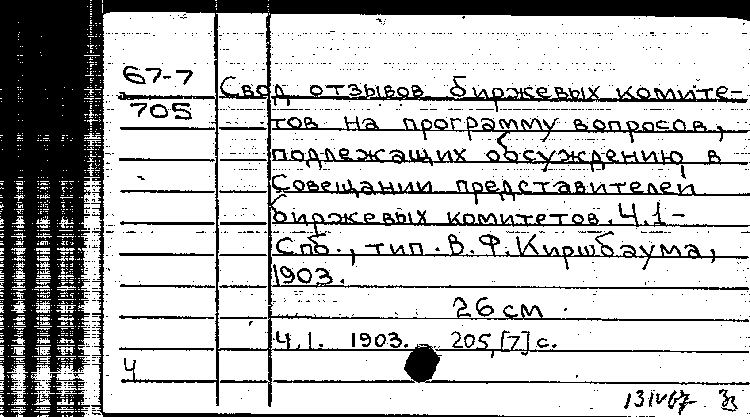 67-7
705
Свод отзывов биржевых комите-
тов на программу вопросов,
подлежащих обсуждению в
Совещании представителей
биржевых комитетов. Ч.1-
Спб., тип. В. Ф. Киршбаума,
1903.
26 см
Ч.1. 1903. 205, [7] с.
Ч
13 IV 67